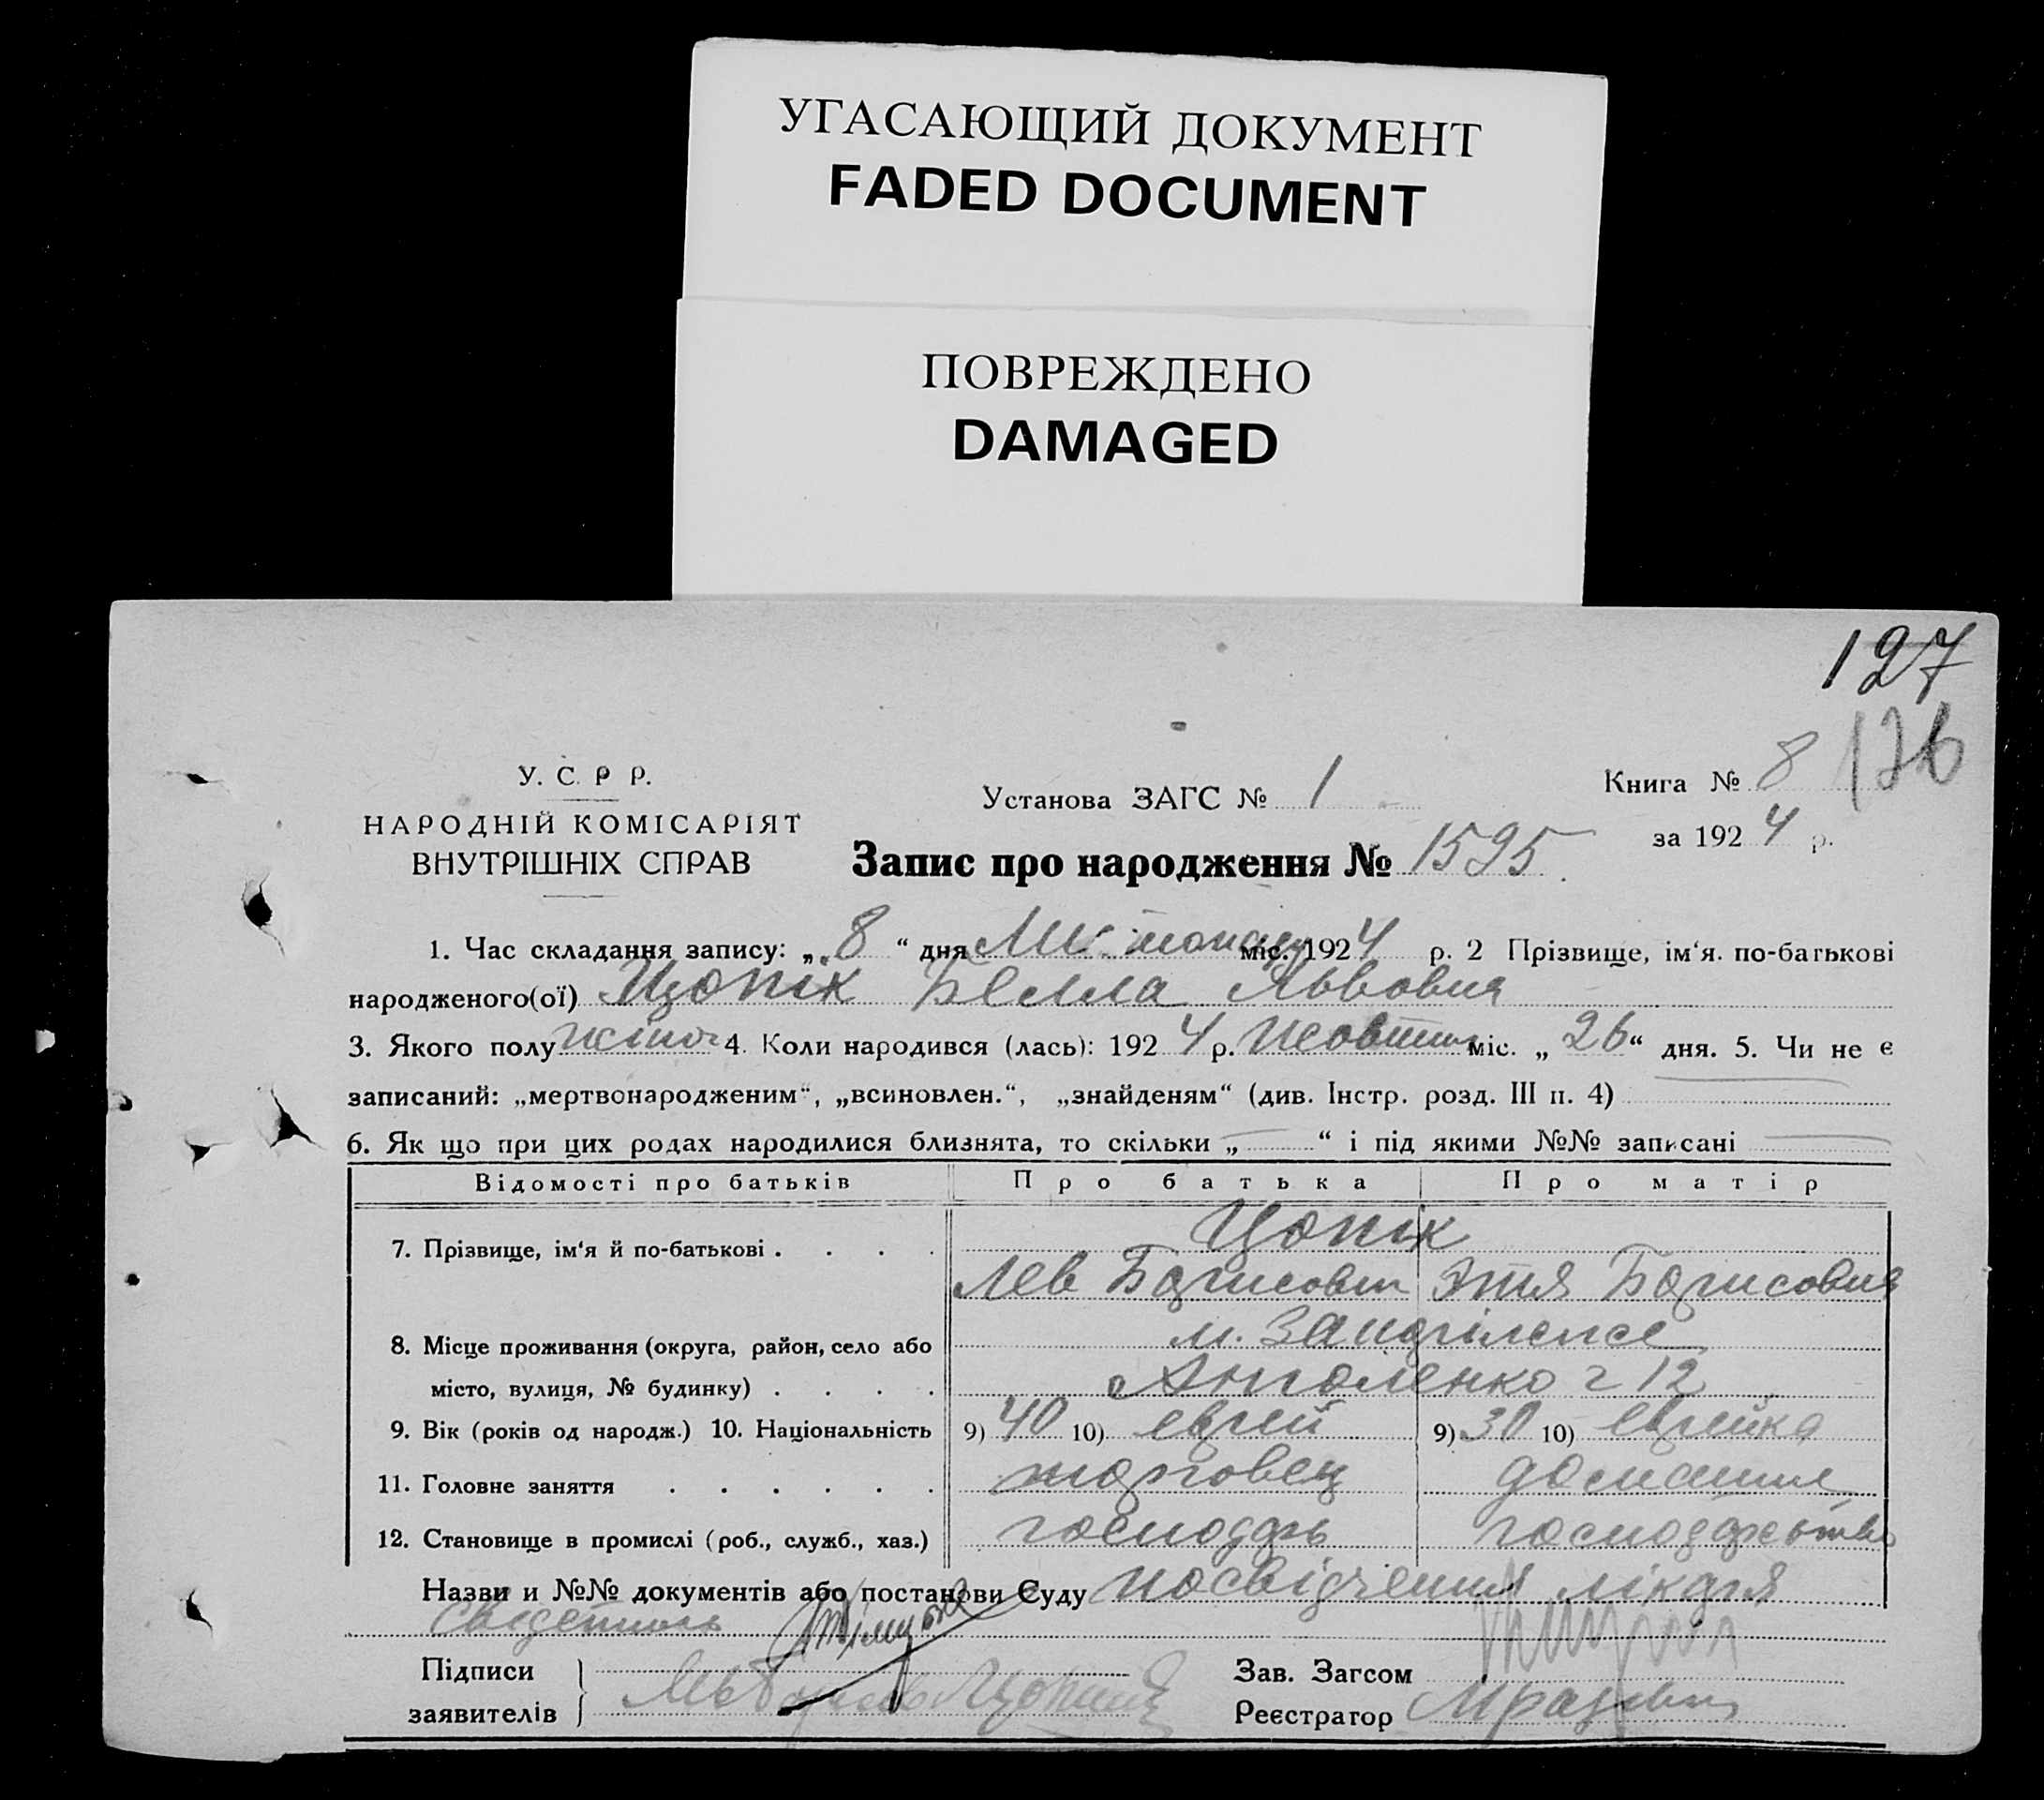 УГАСАЮЩИЙ ДОКУМЕНТ
FADED DOCUMENT
ПОВРЕЖДЕНО
DAMAGED
127
126
У. С. Р Р.
НАРОДНІЙ КОМІСАРІЯТ
ВНУТРІШНІХ СПРАВ
Установа ЗАГС № 1
Книга № 8
за 1924 р.
Запис про народження № 1595
1. Час складання запису: „8“ дня Листопаду міс. 1924 р. 2 Прізвище, ім‘я. по-батькові
народженого(ої) Цопік Белла Львовна
3. Якого полу жіноч 4. Коли народився (лась): 1924 р. Жовтня міс. „26“ дня. 5. Чи не є
записаний: „мертвонародженим“, „всиновлен.“, „знайденям“ (див. Інстр. розд. III п. 4)
6. Як що при цих родах народилися близнята, то скільки „ “ і під якими №№ записані
Відомості про батьків Про батька Про матір
7. Прізвище, ім‘я й по-батькові . . . . Цопік
Лев Борисович Этя Борисовна
8. Місце проживання (округа, район, село або
місто, вулиця, № будинку) . . . . 12
9. Вік (років од народж.) 10. Національність 9) 40 10) еврей 9) 30 10) еврейка
11. Головне заняття . . . . . . торговец домашнє
12. Становище в промислі (роб., служб., хаз.) господарь господарство
Назви и №№ документів або постанови Суду посвідчення лікаря
Підписи
заявителів
Зав. Загсом
Реєстратор